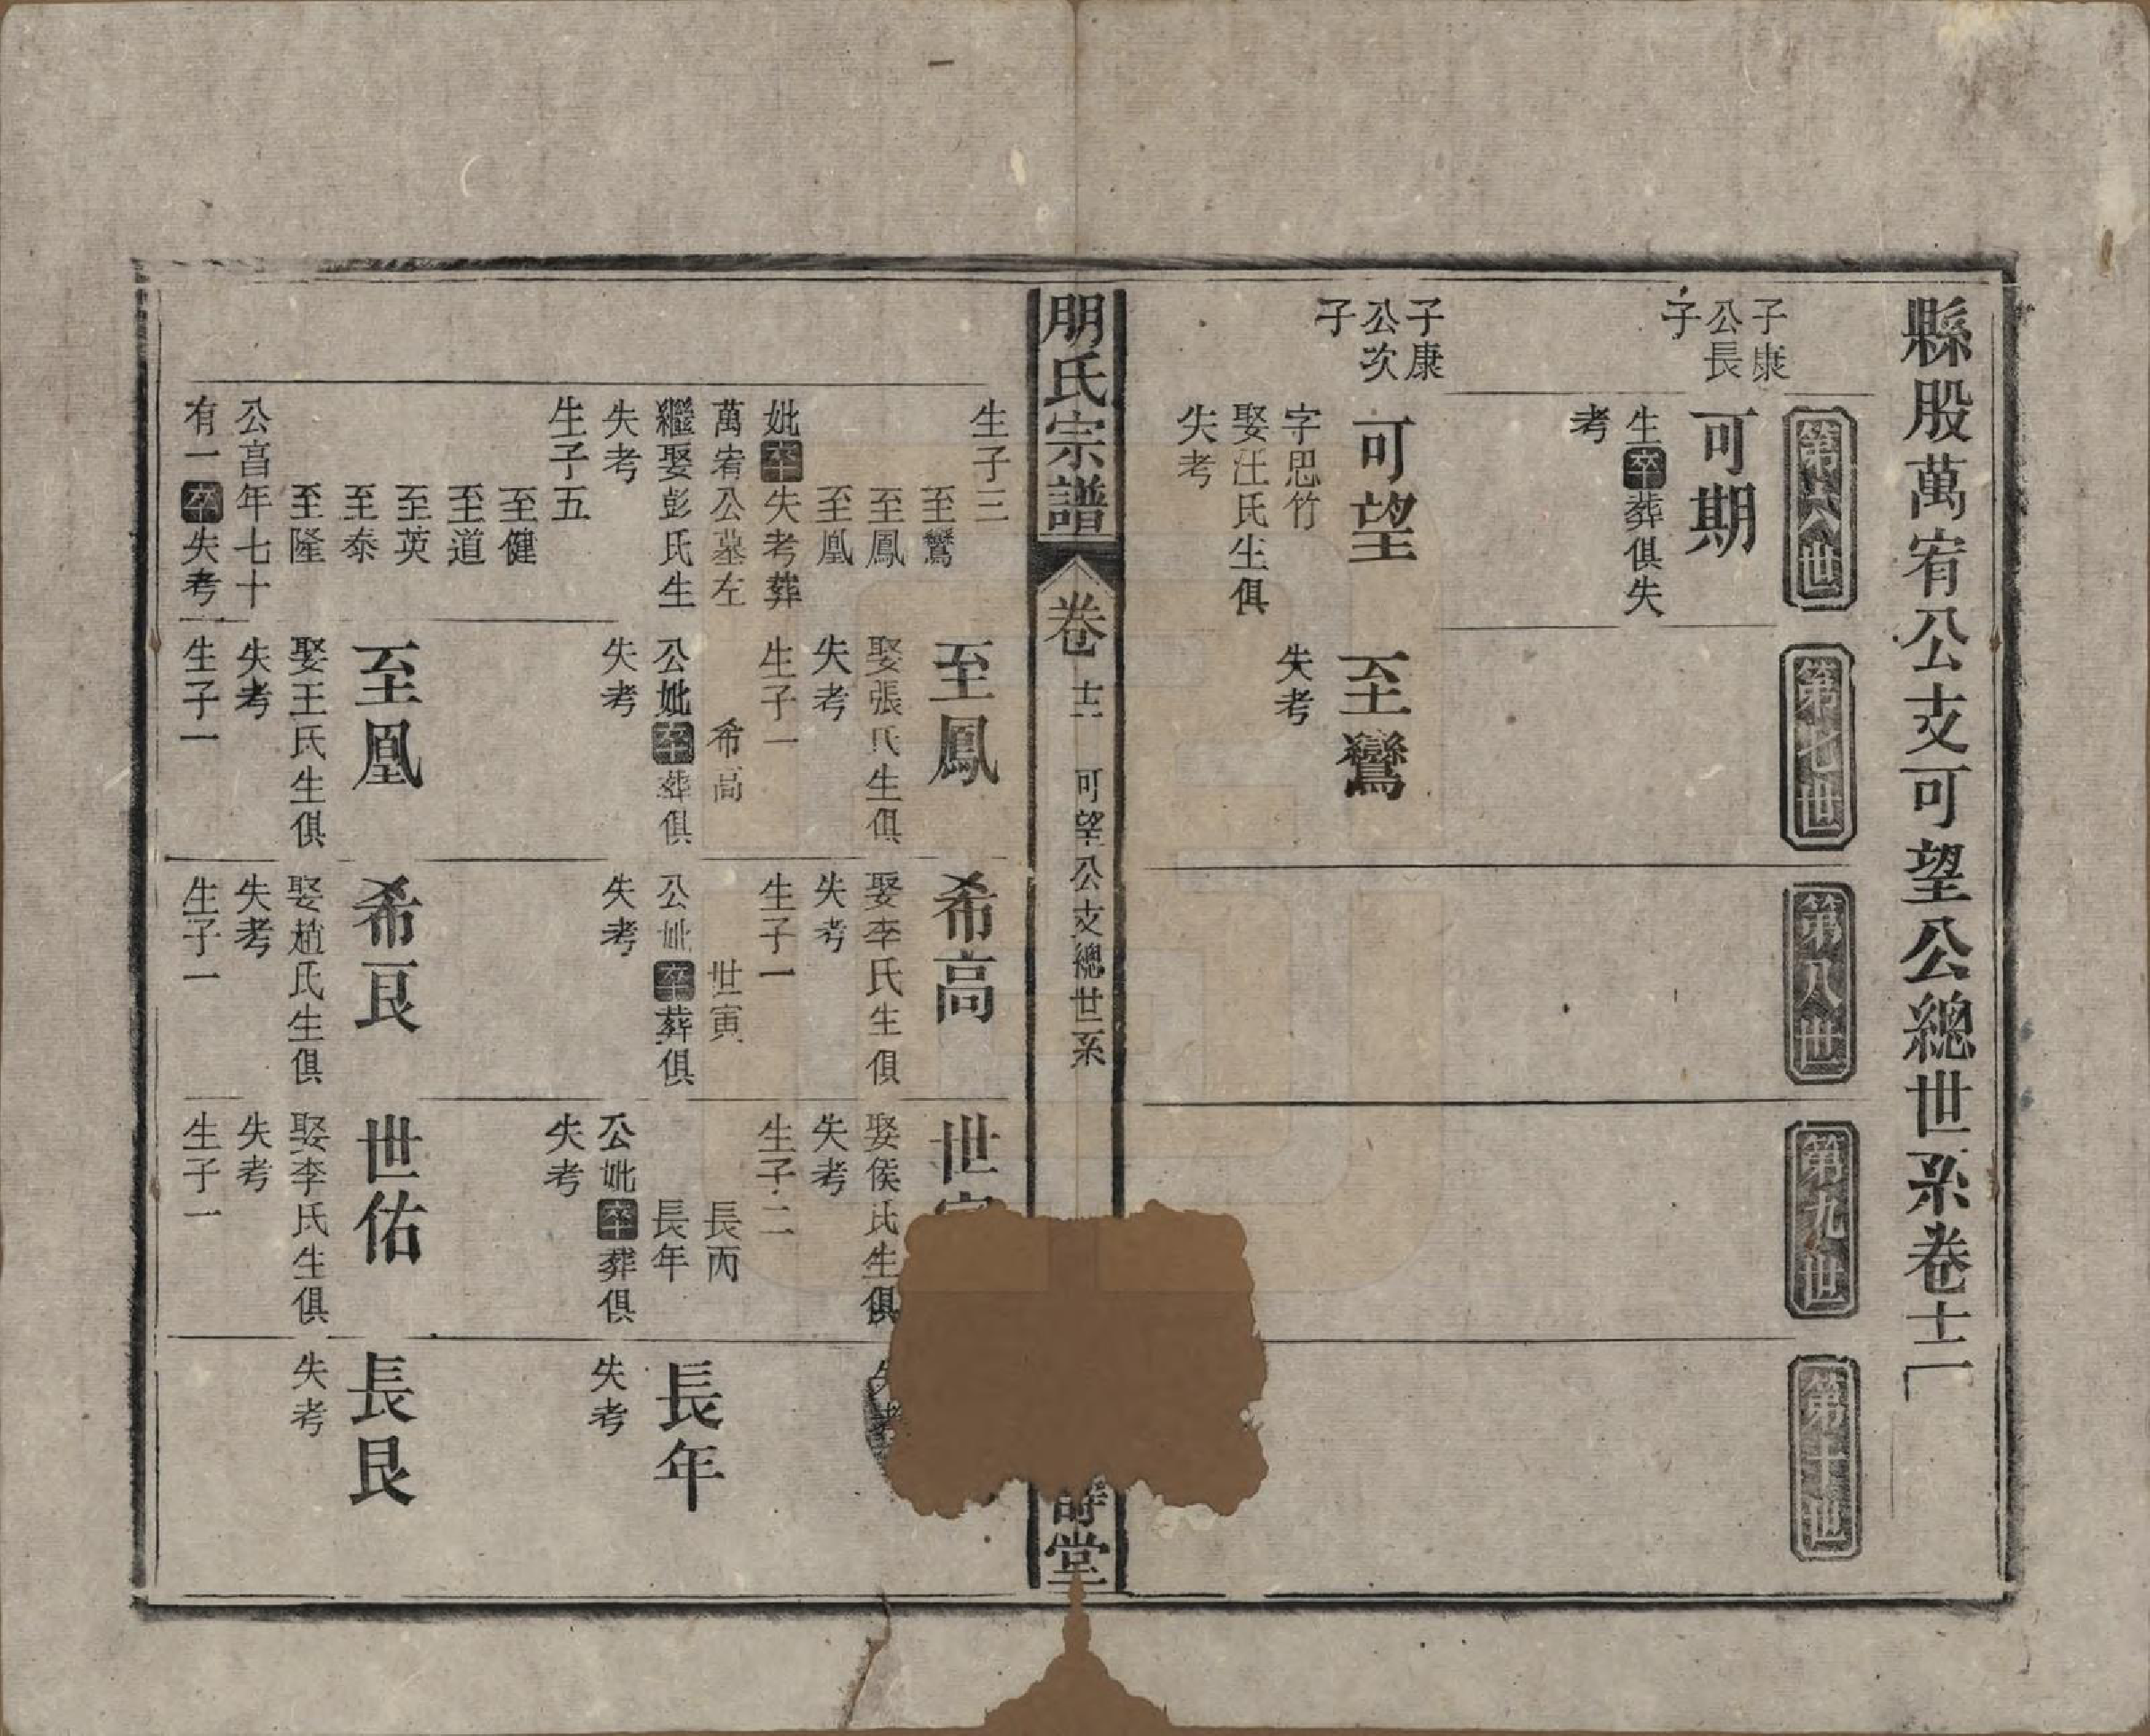 縣股萬宥公支可望公總世系卷十二
第六世
第七世
第八世
第九世
第十世
子康
公長
子
可期
生卒葬俱失
考
子康
公次
子
可望
字思竹
娶汪氏生俱
失考
至鸞
失考
朋氏宗譜
卷
十二
可望公支總世系
詩堂
生子三
至鸞
至鳳
至凰
妣卒失考葬
萬宥公墓左
繼娶彭氏生
失考
生子五
至健
至道
至英
至泰
至隆
公亯年七十
有一卒失考
至鳳
娶張氏生俱
失考
生子一
希高
公妣卒葬俱
失考
希高
娶李氏生俱
失考
生子一
世寅
公妣卒葬俱
失考
世
娶侯氏生俱
失考
生子二
長丙
長年
公妣卒葬俱
失考
失考
長年
失考
至凰
娶王氏生俱
失考
生子一
希良
娶趙氏生俱
失考
生子一
世佑
娶李氏生俱
失考
生子一
長艮
失考